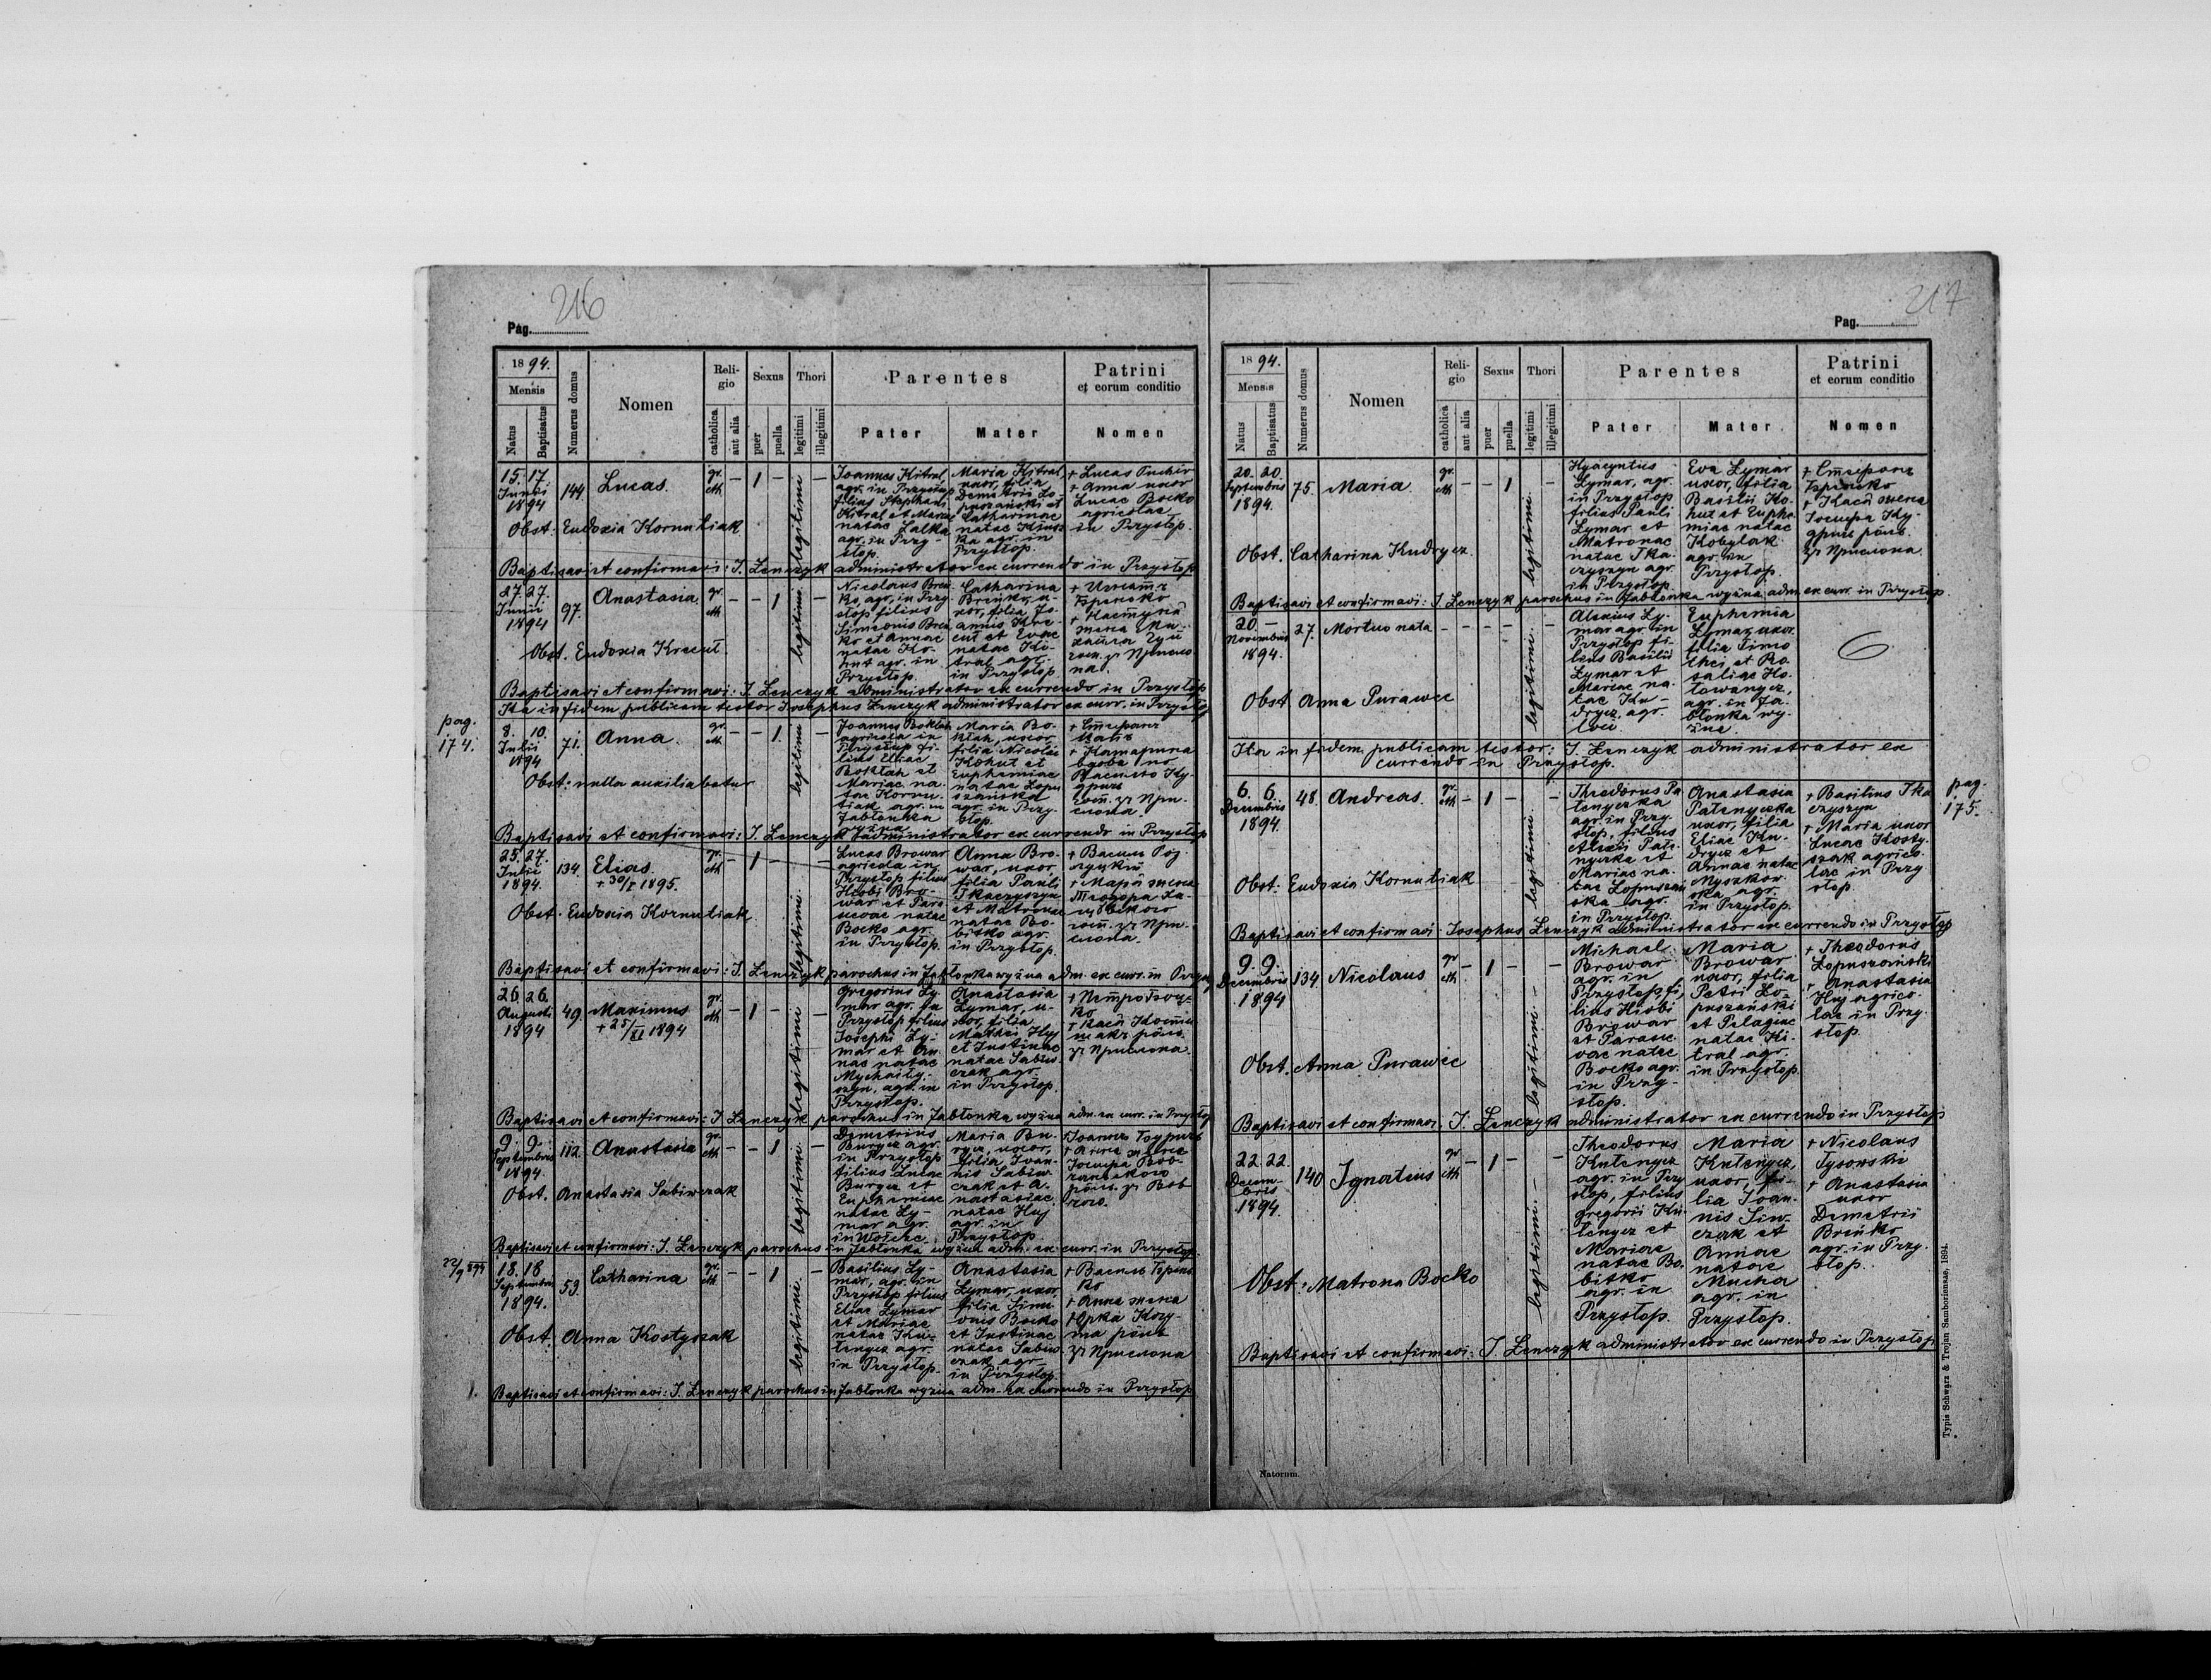 216
Pag.
1894.
Mensis
Natus
Baptisatus
Numerus domus
Nomen
Reli-
gio
catholica
aut alia
Sexus
puer
puella
Thori
legitimi
illegitimi
Parentes
Pater
Mater
Patrini
et eorum conditio
Nomen
15. 17.
Junii
1894
144.
Lucas.
gr.
cth
- 1 - legitimi -
Joannes Kitral,
agr. in Przysłop
filius Stephani
Kitral et Mariae
natae Lalka
agr. in Przy-
słop.
Maria Kitral
uxor, filia
Demetrii Ło-
puszański et
Catharinae
natae
agr. in
Przysłop.
+ Lucas
+ Anna uxor
Lucae Bocko
agricolae
in Przysłop.
Obst. Eudoxia Kornutiak
Baptisavi et confirmavi: J. Lenczyk administrator ex currendo in Przysłop
27. 27.
Junii
1894
97.
Anastasia.
gr.
cth
- - 1 legitimi -
Nicolaus Breń
ko, agr. in Przy-
słop filius
Simeonis Breń
ko et Annae
natae Ko-
hut agr. in
Przysłop.
Catharina
Breńko, u-
xor, filia Jo-
annis Kre-
cut et Evae
natae Ki-
tral agr.
in Przysłop
+
Бренько
жена Ми-
хаила
Obst. Eudoxia Krecut.
Baptisavi et confirmavi: J. Lenczyk administrator ex currendo in Przysłop
Ita in fidem publicam testor Josephus Lenczyk administrator ex curr. in Przysłop
pag.
174.
8. 10.
Julii
1894
71.
Anna.
gr.
cth
- - 1. legitimi -
Joannes Bokłah
agricola in
Przysłop fi-
lius Eliae
Bokłah et
Mariae na-
tae Kornu-
tiak agr. in
Jabłonka
wyżna
Maria Bo-
kłah, uxor
filia Nicolai
Kohut et
Euphemiae
natae Łopu
szańska
agr. in Przy-
słop.
+ Катарина
вдова по
Obst: nulla auxiliabatur
Baptisavi et confirmavi: J. Lenczyk administrator ex currendo in Przysłop
25. 27.
Julii
1894.
134.
Elias.
+ 30/I 1895.
gr.
cth
- 1 - legitimi. -
Lucas Browar
agricola in
Przysłop filius
Hiobi Bro-
war et Para-
scevae natae
Bocko agr.
in Przysłop.
Anna Bro-
war, uxor,
filia Pauli
Tkaczyszyn
et Matronae
natae Bo-
bitko agr.
in Przysłop.
+
+ Марія жена
Obst. Eudoxia Kornutiak.
Baptisavi et confirmavi: J. Lenczyk parochus in Jabłonka wyżna adm. ex curr. in Przysłop
26. 26.
Augusti
1894
49.
Maximus
+ 25/XI 1894
gr.
cth
- 1 - legitimi -
Gregorius Ły-
mar agr. in
Przysłop filius
Josephi Ły-
mar et An-
nae natae
Mychaiły-
szyn, agr. in
Przysłop.
Anastasia
Łymar, u-
xor, filia
Mathei Huj
et Justinae
natae Sabiw-
czak agr.
in Przysłop
+ Петро
Baptisavi et confirmavi: J. Lenczyk parochus in Jabłonka wyżna adm. ex curr. in Przysłop
9. 9.
Septembris
1894.
112.
Anastasia
gr.
cth
- - 1 - legitimi.
Demetrius
Burycz agr.
in Przysłop
filius Lucae
Burycz et
Euphemiae
natae Ły-
mar agr.
in Wołcze.
Maria Bu-
rycz, uxor,
filia Ioan-
nis Sabiw-
czak et A-
nastasiae
natae Huj
agr. in
Przysłop
Obst. Anastasia Sabiwczak
Baptisavi et confirmavi: J. Lenczyk parochus in Jabłonka wyżna adm. ex curr. in Przysłop.
22/9 894
18. 18.
Septembris
1894.
53.
Catharina
gr.
cth
- - 1 legitimi. -
Basilius Ły-
mar, agr. in
Przysłop filius
Eliae Łymar
et Mariae
natae Ku-
łenycz agr.
in Przysłop.
Anastasia
Łymar, uxor,
filia Sime-
onis Bocko
et Justinae
natae Sabiw
czak agr.
in Przysłop.
+ Анна жена
Obst. Anna Kostyszak
1.
Baptisavi et confirmavi: J. Lenczyk parochus in Jabłonka wyżna adm. ex currendo in Przysłop
217
Pag.
1894.
Mensis
Natus
Baptisatus
Numerus domus
Nomen
Reli-
gio
catholica
aut alia
Sexus
puer
puella
Thori
legitimi
illegitimi
Parentes
Pater
Mater
Patrini
et eorum conditio
Nomen
20. 20.
Septembris
1894.
75.
Maria
gr.
cth
- - 1 legitimi. -
Hyacyntus
Łymar, agr.
in Przysłop
filius Pauli
Łymar et
Matronae
natae Tka-
czyszyn agr.
in Przysłop
Eva Łymar
uxor, filia
Basilii Ko-
hut et Euphe-
miae natae
Kobylak
agr. in
Przysłop.
Бренько
Obst. Catharina Kudrycz.
Baptisavi et confirmavi: J. Lenczyk parochus in Jabłonka wyżna adm. ex curr. in Przysłop.
20. -
Novembris
1894.
27.
Mortuo nata
- - - - legitimi. -
Alexius Ły-
mar agr. in
Przysłop fi-
lius Basilii
Łymar et
Mariae na-
tae Ku-
drycz, agr.
loci.
Euphemia
Łymar, uxor.
filia Timo
thei et Ro-
saliae Ho-
łowanycz,
agr. in Ja-
błonka wy-
żna.
6
Obst Anna Purawec
Ita in fidem publicam testor: J. Lenczyk administrator ex
currendo in Przysłop.
pag.
175.
6. 6.
Decembris
1894.
48.
Andreas.
gr.
cth
- 1 - legitimi. -
Theodorus Pa
tenyczka
agr. in Przy-
słop, filius
Alexii Pate-
nyczka et
Mariae na-
tae Łopuszań
ska agr.
in Przysłop.
Anastasia
Patenyczka
uxor, filia
Eliae Ku-
drycz et
Annae natae
Myszkow-
ska, agr.
in Przysłop.
+ Basilius Tka
czyszyn
+ Maria uxor
Lucae Kosty-
szak agrico-
lae in Przy
słop.
Obst: Eudoxia Kornutiak
Baptisavi et confirmavi: Josephus Lenczyk administrator ex currendo in Przysłop
9. 9.
Decembris
1894
134.
Nicolaus
gr.
cth.
- 1 - legitimi. -
Michael
Browar
agr. in
Przysłop, fi
lius Hiobi
Browar
et Parasce
vae natae
Bocko agr.
in Przy-
słop.
Maria
Browar
uxor, filia
Petri Ło-
puszański
et Pelagiae
natae Ki-
tral agr.
in Przysłop.
+ Theodorus
Łopuszański
+ Anastasia
Huj agrico-
lae in Przy-
słop.
Obst. Anna Purawec
Baptisavi et confirmavi. J. Lenczyk administrator ex currendo in Przysłop
22. 22.
Decem-
bris
1894.
140
Ignatius
gr
cth
- 1 - legitimi. -
Theodorus
Kułenycz
agr. in Przy
słop, filius
Gregorii Ku-
łenycz et
Mariae
natae Bo-
bitko
agr. in
Przysłop.
Maria
Kułenycz,
uxor, fi-
lia Joan-
nis Siw-
czak et
Annae
natae
Mucha
agr. in
Przysłop.
+ Nicolaus
Tysowski
+ Anastasia
uxor
Demetrii
Breńko
agr. in Przy-
słop.
Obst: Matrona Bocko
Baptisavi et confirmavi: J. Lenczyk administrator ex currendo in Przysłop
Natorum.
Typis Schwarz & Trojan Samboriensae, 1894.